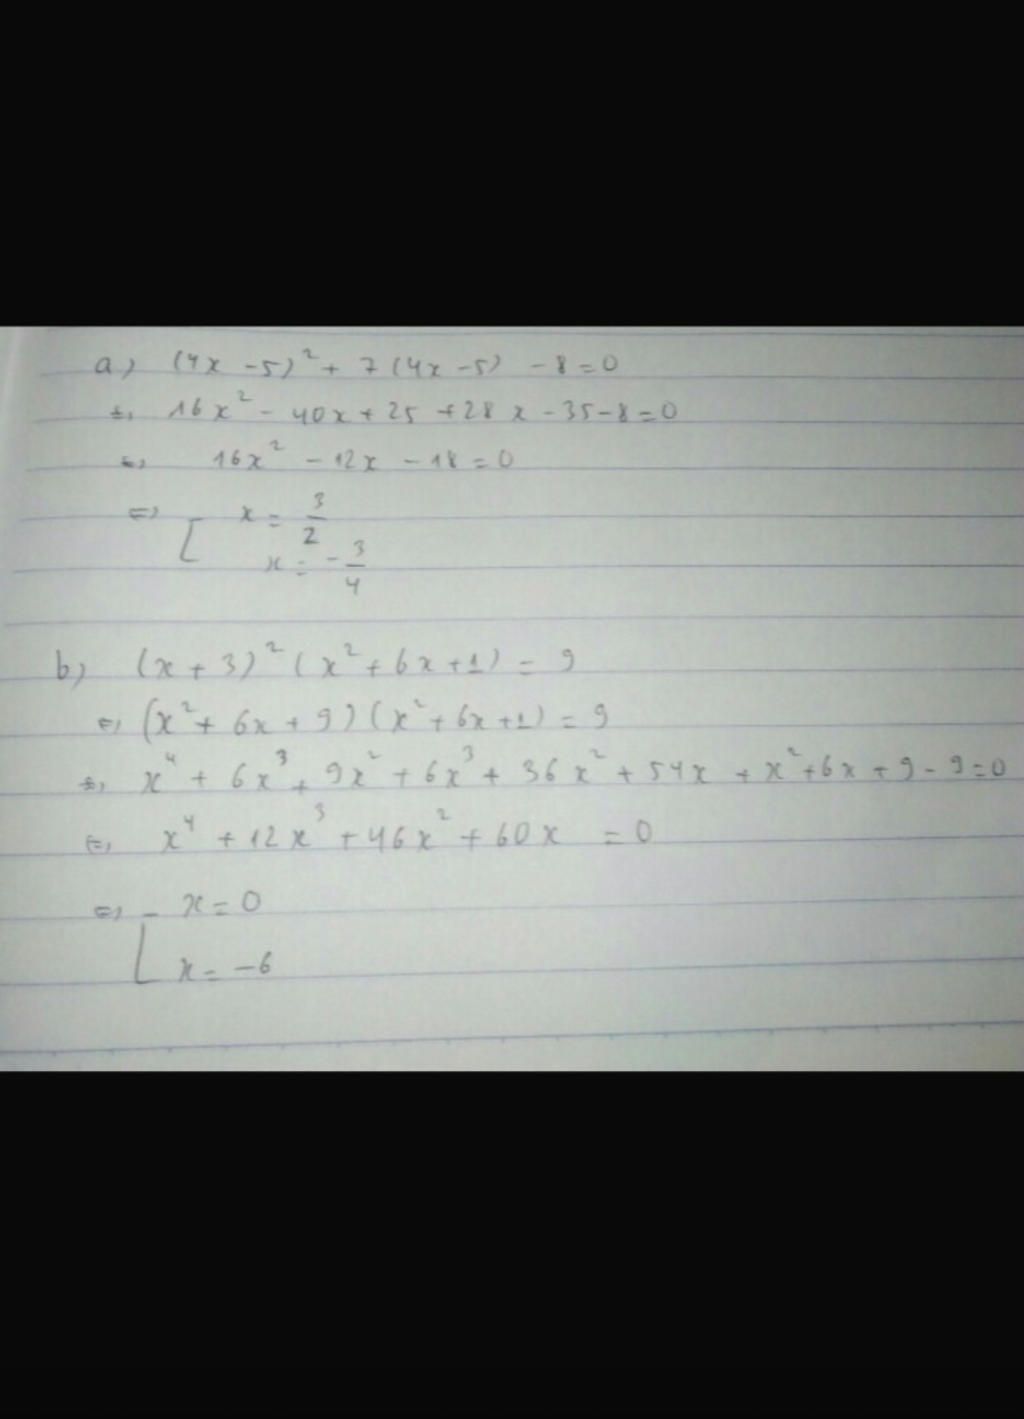 a) (4x - 5)² + 7(4x - 5) - 8 = 0
⇔ 16x² - 40x + 25 + 28x - 35 - 8 = 0
⇔ 16x² - 12x - 18 = 0
⇔ [ x = 3/2
x = - 3/4
b) (x + 3)² (x² + 6x + 1) = 9
⇔ (x² + 6x + 9)(x² + 6x + 1) = 9
⇔ x⁴ + 6x³ + 9x² + 6x³ + 36x² + 54x + x² + 6x + 9 - 9 = 0
⇔ x⁴ + 12x³ + 46x² + 60x = 0
⇔ [ x = 0
x = -6